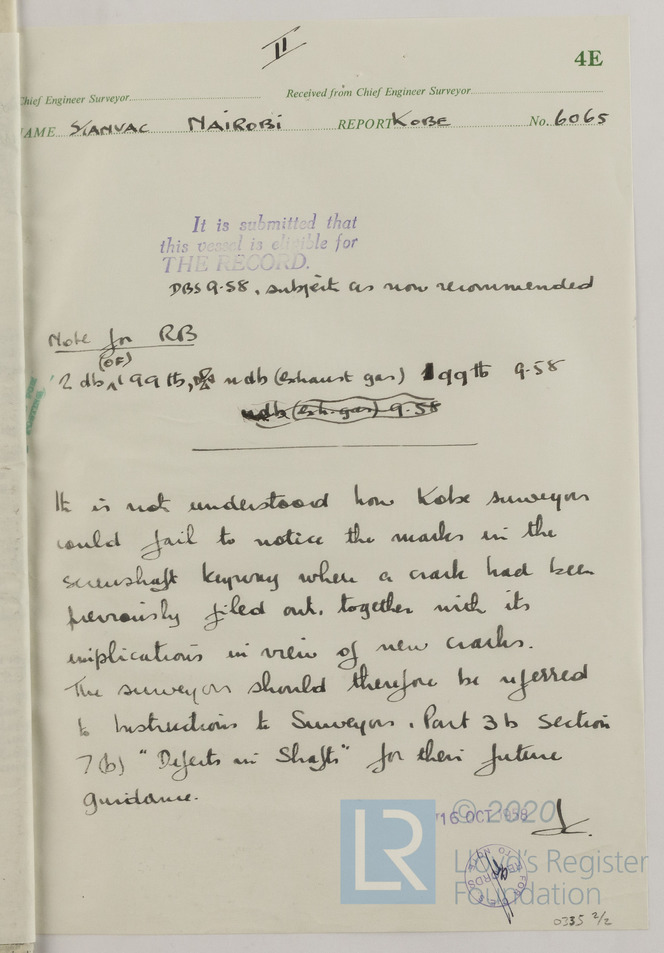 II
4E
Chief Engineer Surveyor
Received from Chief Engineer Surveyor
AME STANVAC NAIROBI REPORT KOBE No. 6065
It is submitted that
this vessel is eligible for
THE RECORD.
DBS 9.58, subject as now recommended
Note for RB
(OF)
2 db 199 lb, wdb (exhaust gas) 199 lb 9.58
wdb (exh. gas) 9.58
It is not understood how Kobe surveyors
could fail to notice the marks in the
screwshaft keyway where a crack had been
previously filed out, together with its
implications in view of new cracks.
The surveyors should therefore be referred
to Instructions to Surveyors, Part 3b Section
7(b) "Defects in Shafts" for their future
guidance.
16 OCT 1958
© 2020
LR
Lloyd's Register
Foundation
0335 2/2